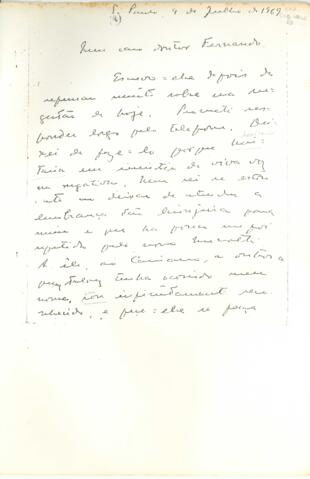 S. Paulo 9 de Julho de 1969
Meu caro doutor Fernando
Escrevo-lhe depois de
repensar muito sobre sua su-
gestão de hoje. Prometi res-
ponder logo pelo telefone. Dei-
xei de fazê-lo porque
em insistir de viva voz
na negativa. Nem sei se estou
até me deixar de atender a
lembrança tão lisonjeira para
mim e que ha pouco me foi
repetida pelo nosso
A ele, ao Camargo, a outros a
quem talvez tenha ocorrido meu
nome, sou infinitamente reco-
nhecido, e peço-lhe se faça